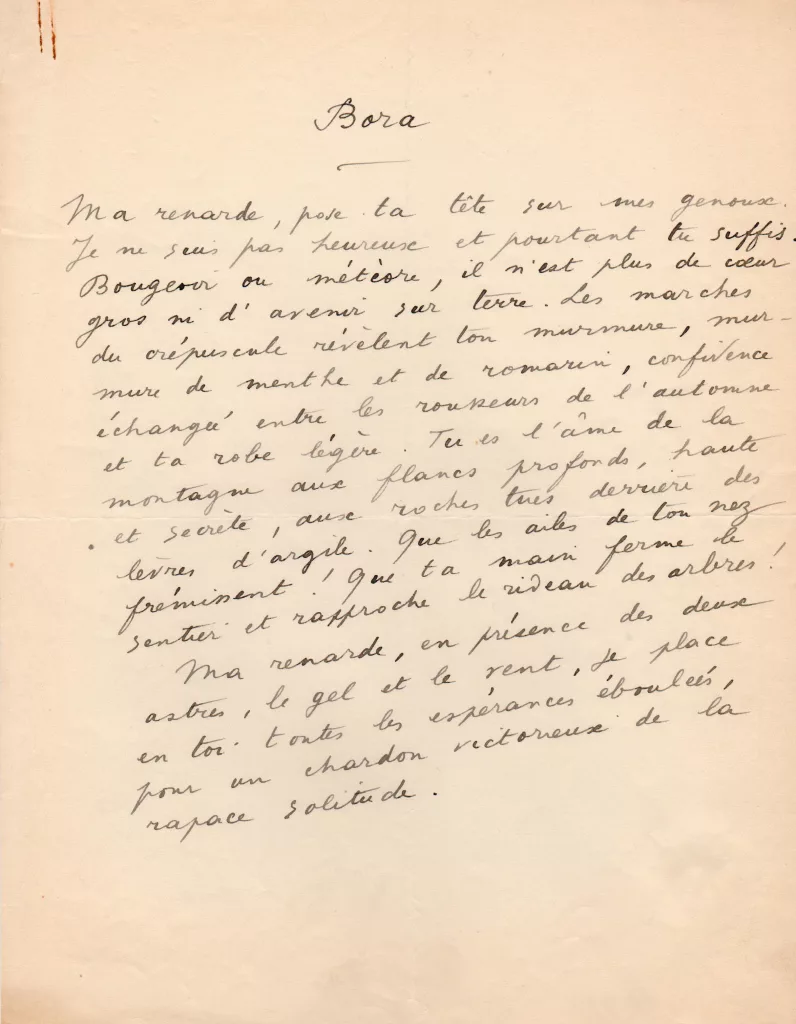 Bora
Ma renarde, pose ta tête sur mes genoux.
Je ne suis pas heureux et pourtant tu suffis.
Bougeoir ou météore, il n'est plus de cœur
gros ni d'avenir sur terre. Les marches
du crépuscule révèlent ton murmure, mur-
mure de menthe et de romarin, confidence
échangée entre les rousseurs de l'automne
et ta robe légère. Tu es l'âme de la
montagne aux flancs profonds, haute
et secrète, aux roches tues derrière des
lèvres d'argile. Que les ailes de ton nez
frémissent ! Que ta main ferme le
sentier et rapproche le rideau des arbres !
Ma renarde, en présence des deux
astres, le gel et le vent, je place
en toi toutes les espérances éboulées,
pour un chardon victorieux de la
rapace solitude.